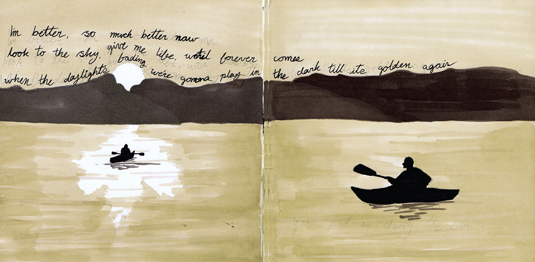 Im better, so much better now
look to the sky, give me life, we'll forever comes
when the daylights fading we're gonna play in the dark till its golden again